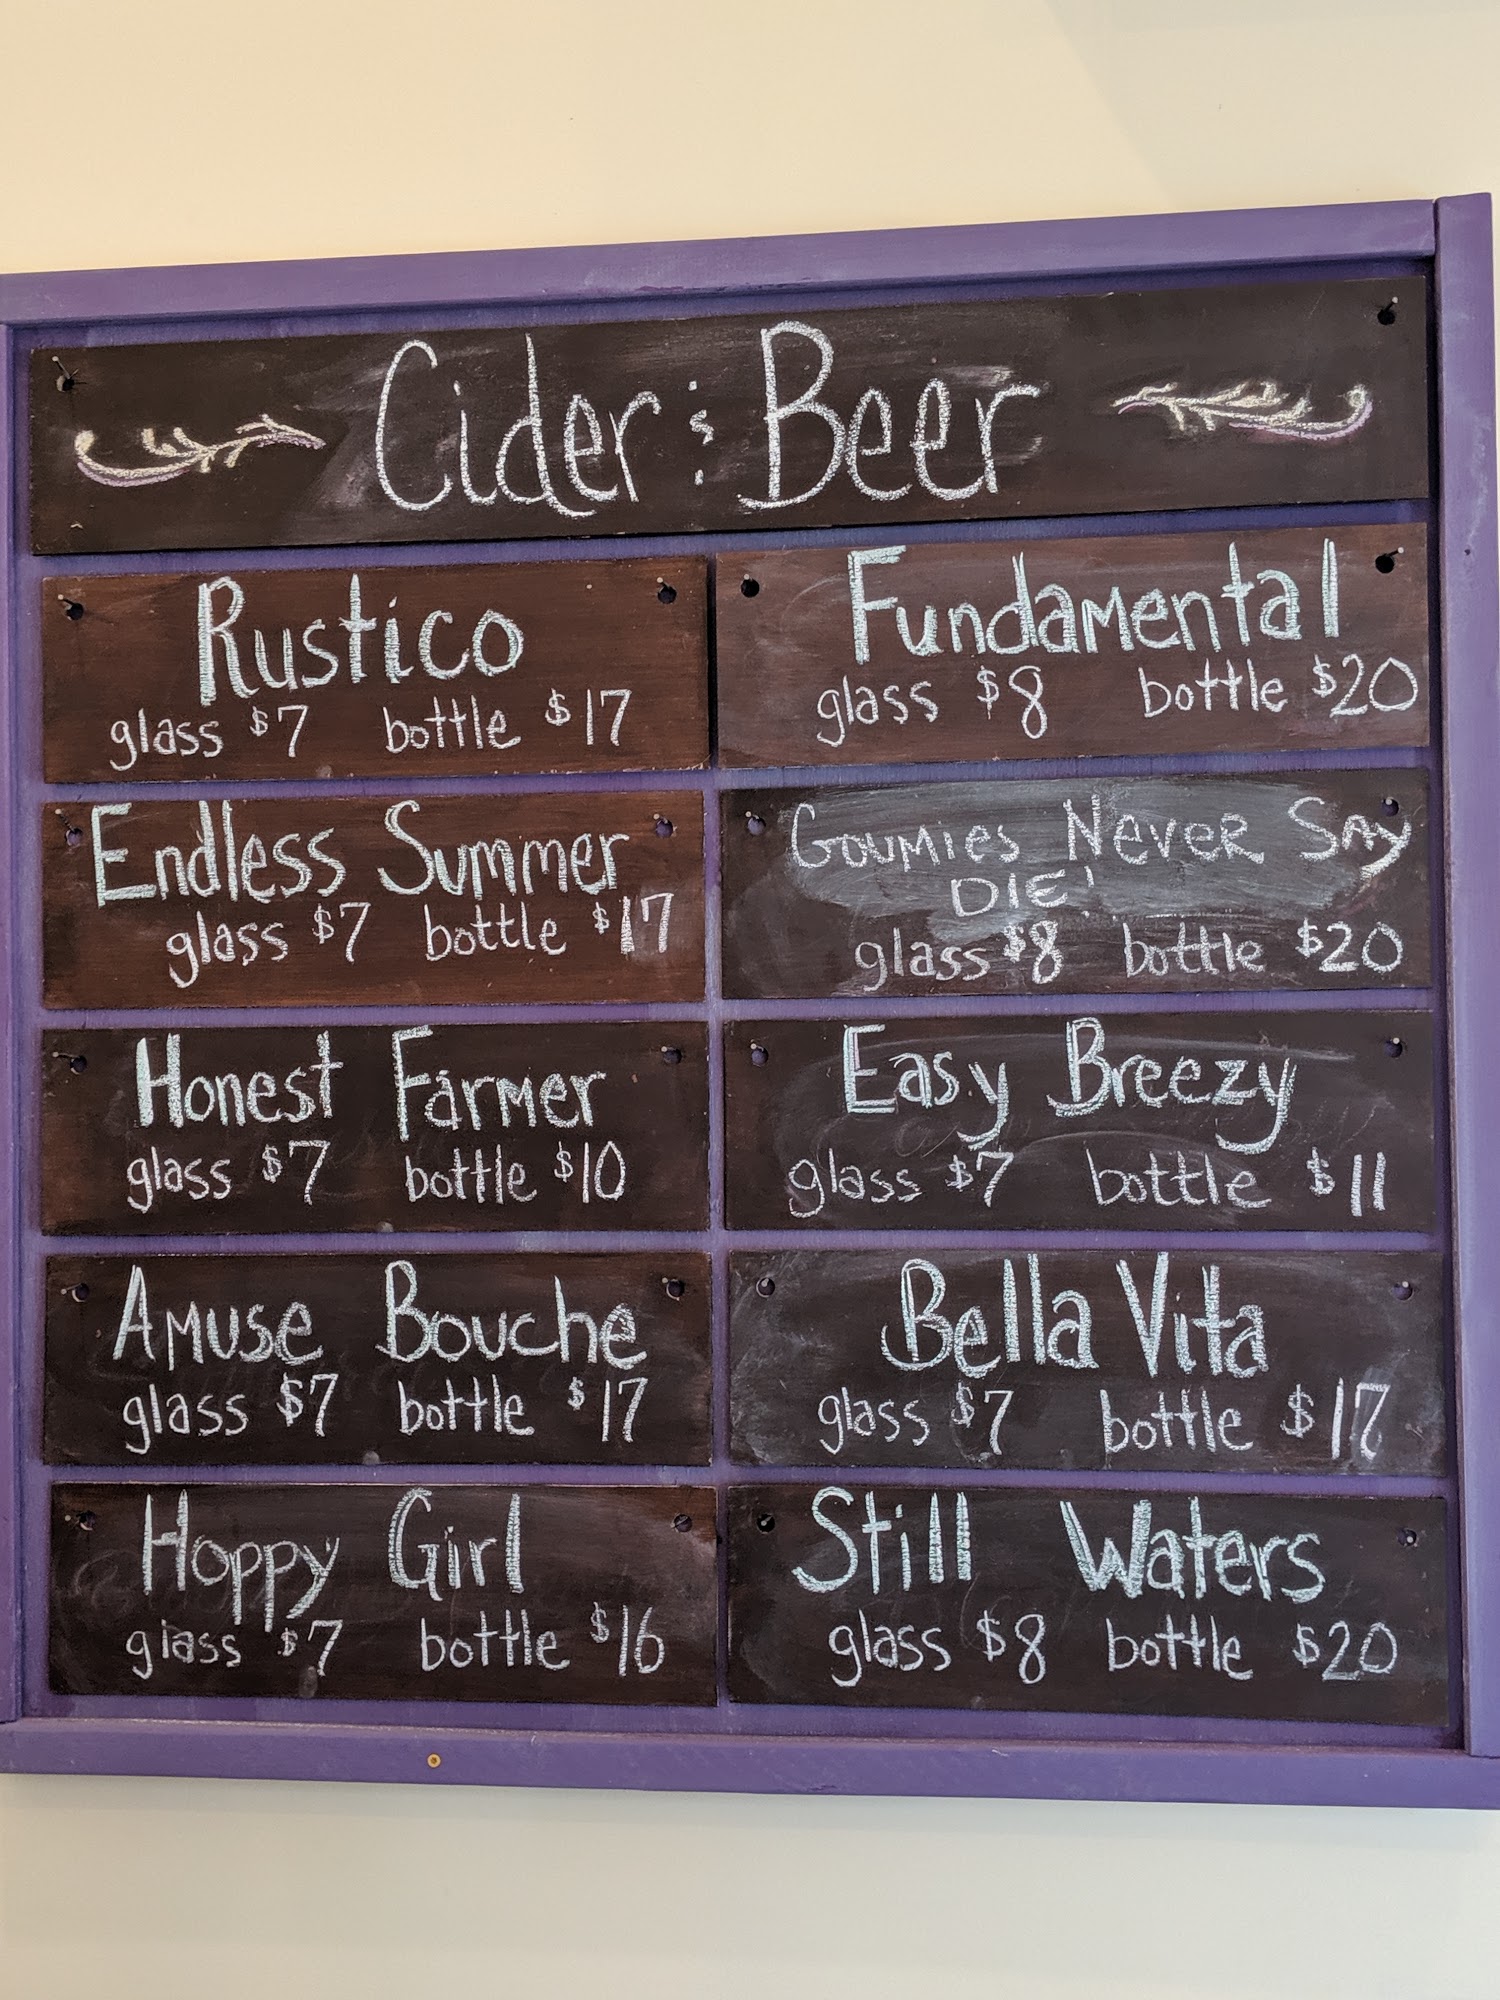 Cider & Beer
Rustico
glass $7 bottle $17
Fundamental
glass $8 bottle $20
Endless Summer
glass $7 bottle $17
Goumies Never Say
Die!
glass $8 bottle $20
Honest Farmer
glass $7 bottle $10
Easy Breezy
glass $7 bottle $11
Amuse Bouche
glass $7 bottle $17
Bella Vita
glass $7 bottle $17
Hoppy Girl
glass $7 bottle $16
Still Waters
glass $8 bottle $20